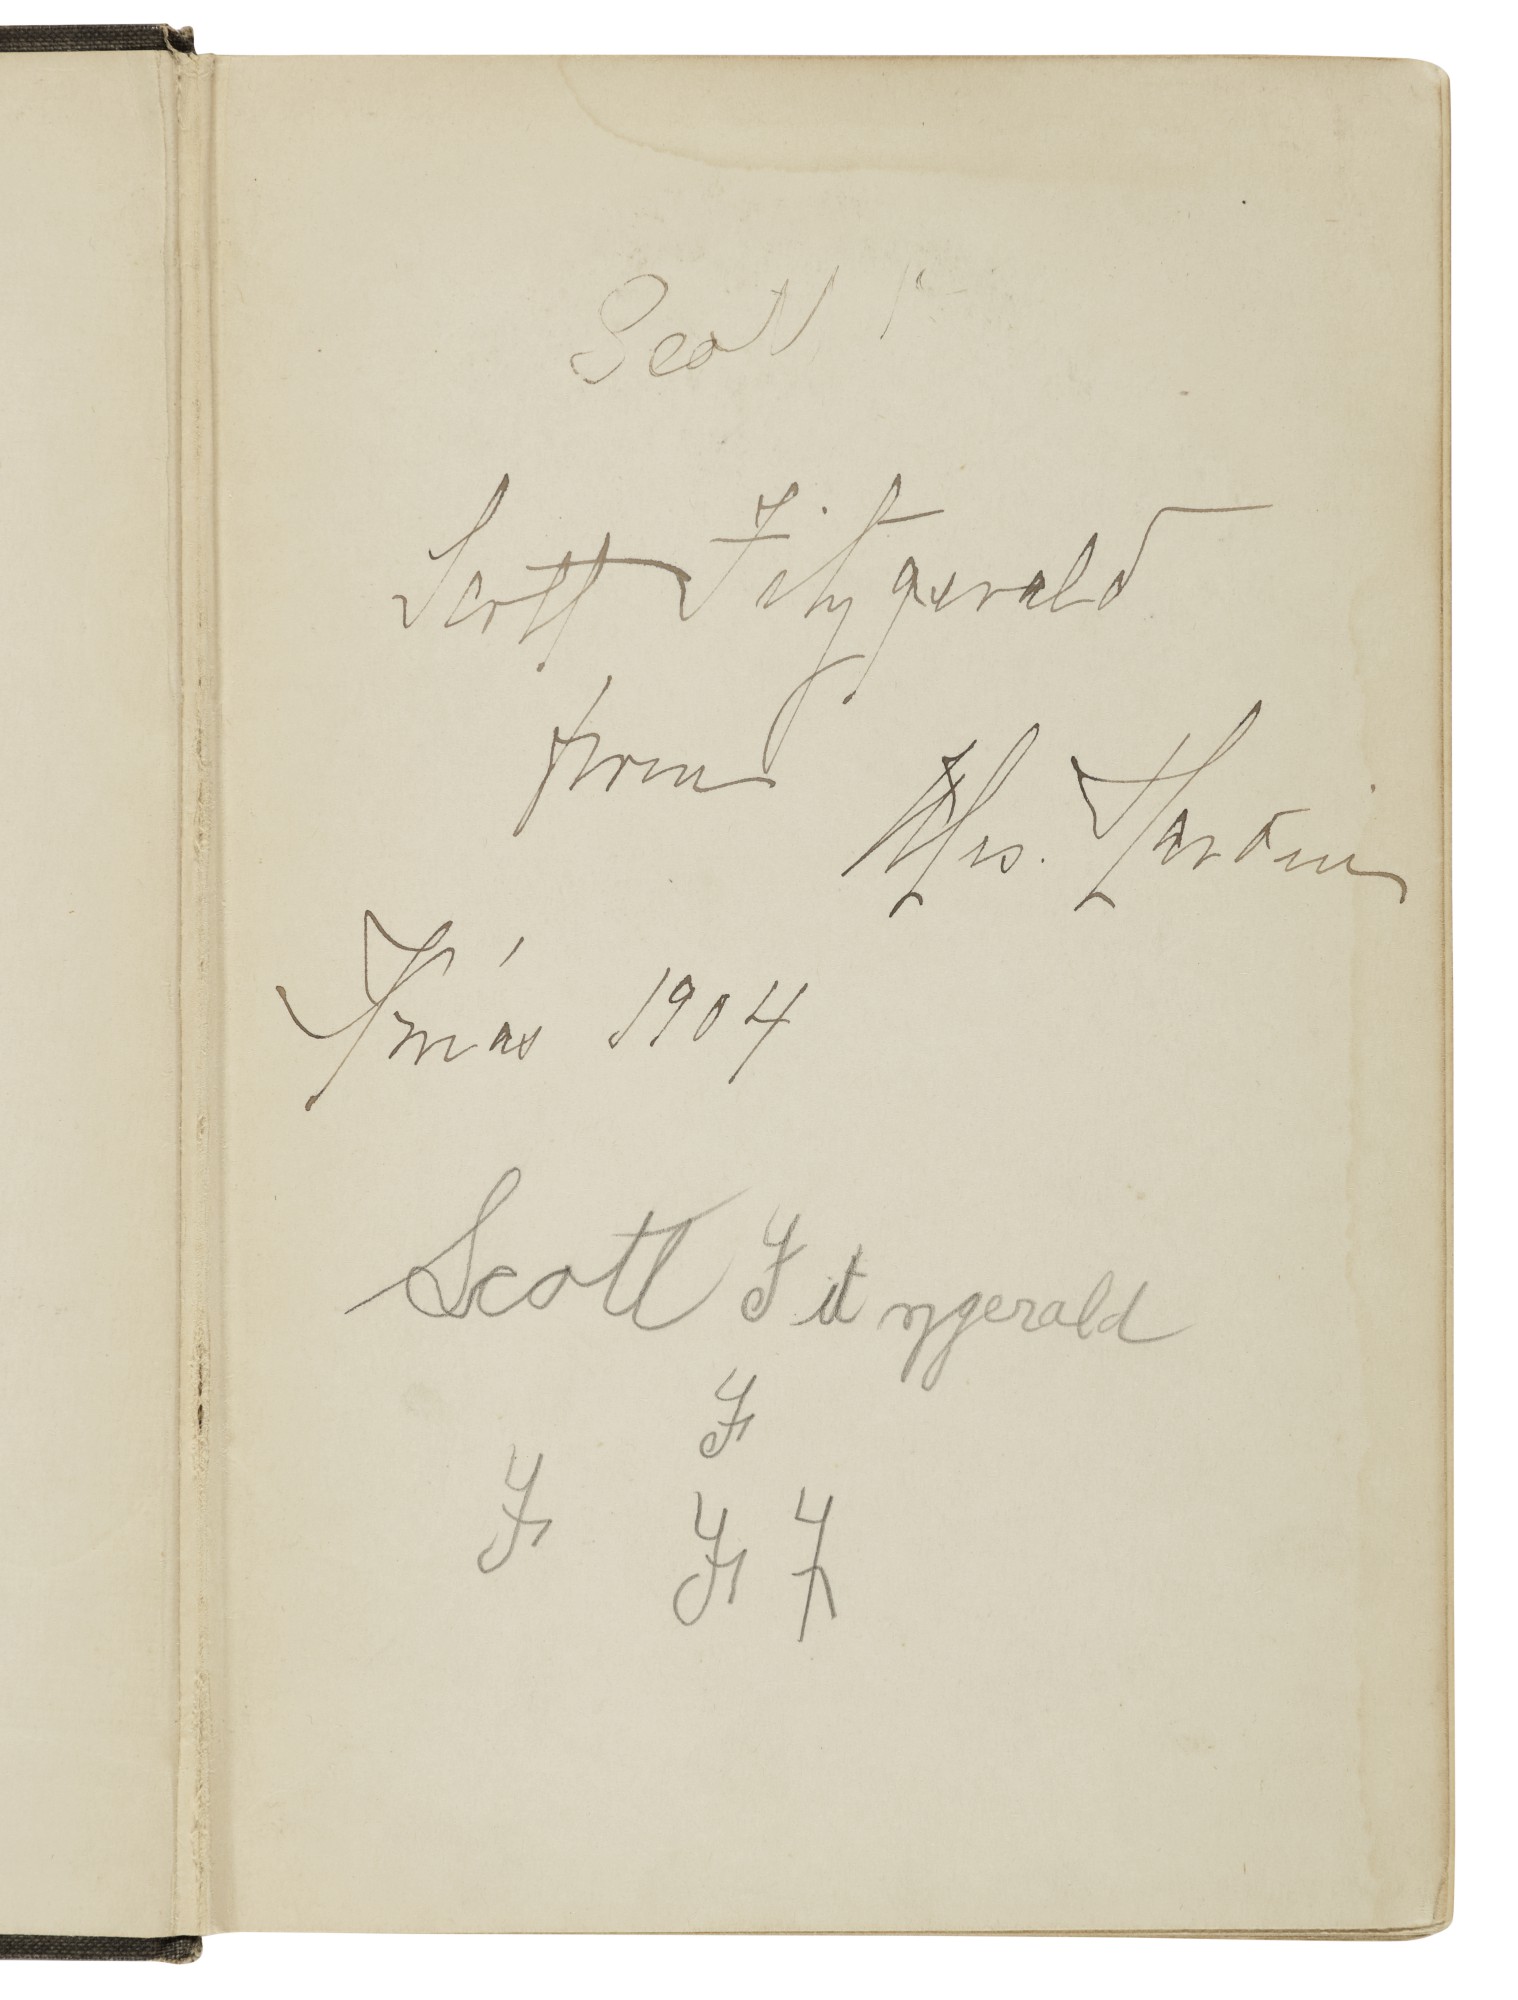 Scott F
Scott Fitzgerald
from
Mrs. Hardin
Xmas 1904
Scott Fitzgerald
F
F
F F